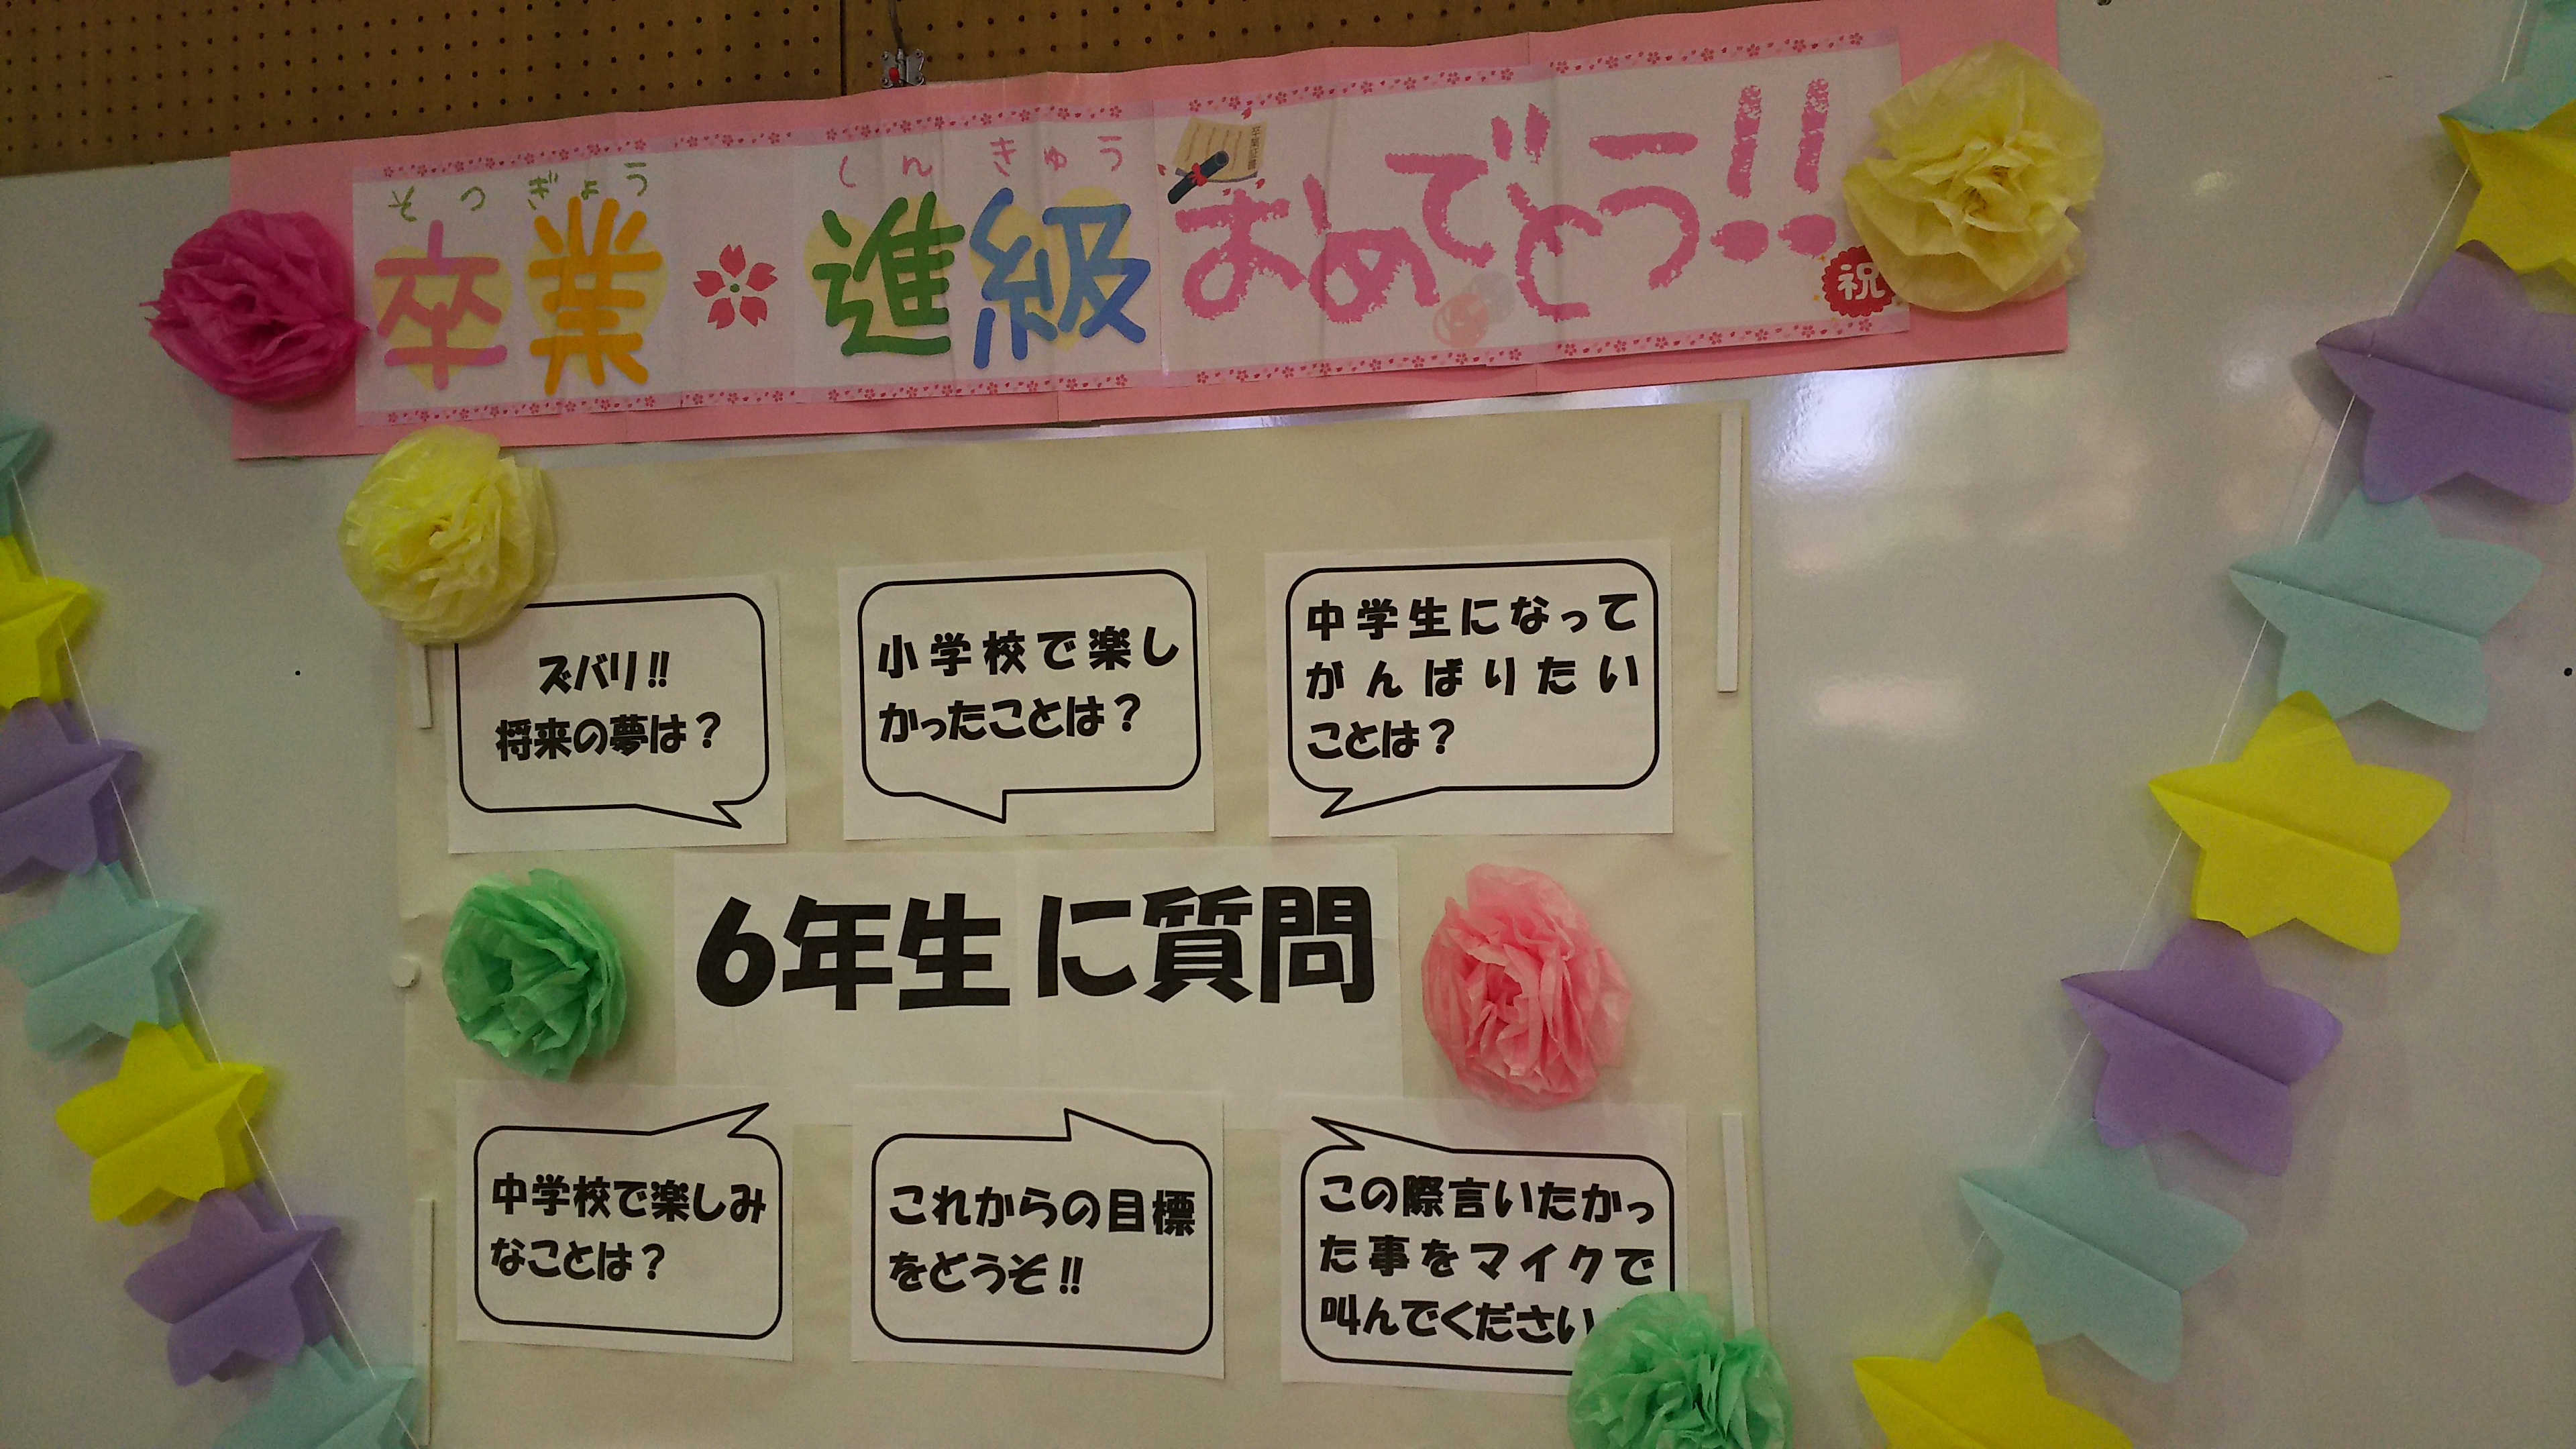 そつぎょう しんきゅう
卒業 進級 おめでとう!!
祝
ズバリ!!
将来の夢は？
小学校で楽し
かったことは？
中学生になって
がんばりたい
ことは？
6年生に質問
中学校で楽しみ
なことは？
これからの目標
をどうぞ!!
この際言いたかっ
た事をマイクで
叫んでください